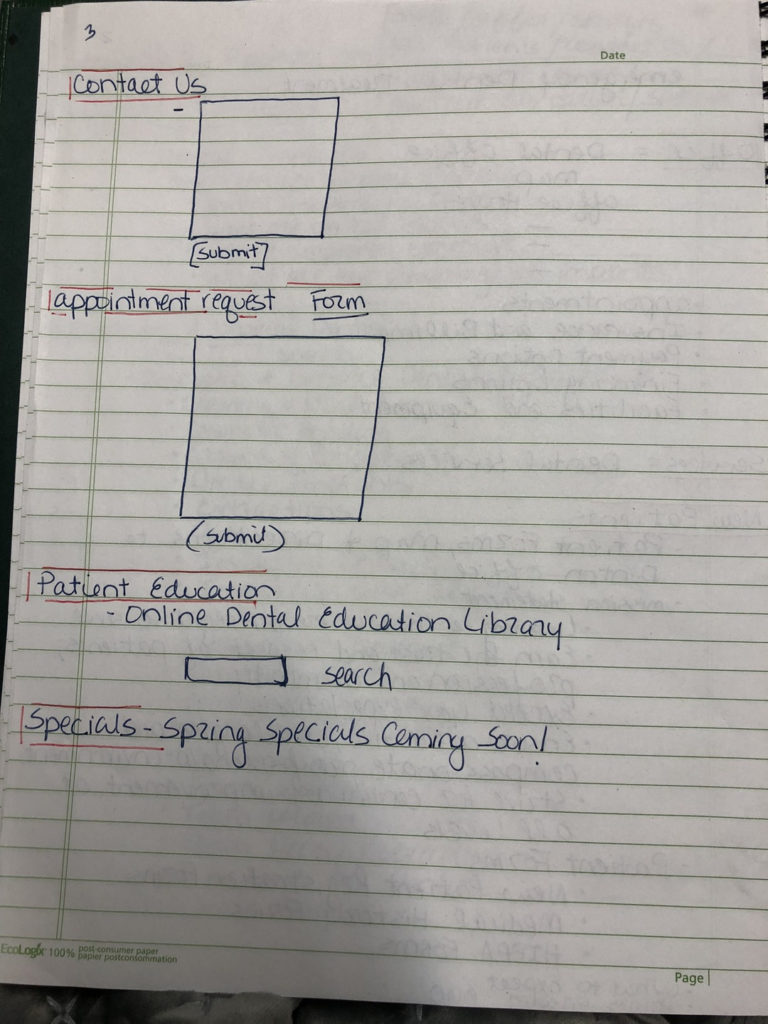 3
Date
Contact Us
-
[submit]
appointment request Form
(submit)
Patient Education
- Online Dental Education Library
search
Specials - Spring Specials Coming Soon!
EcoLogix 100% post-consumer paper
papier postconsommation
Page